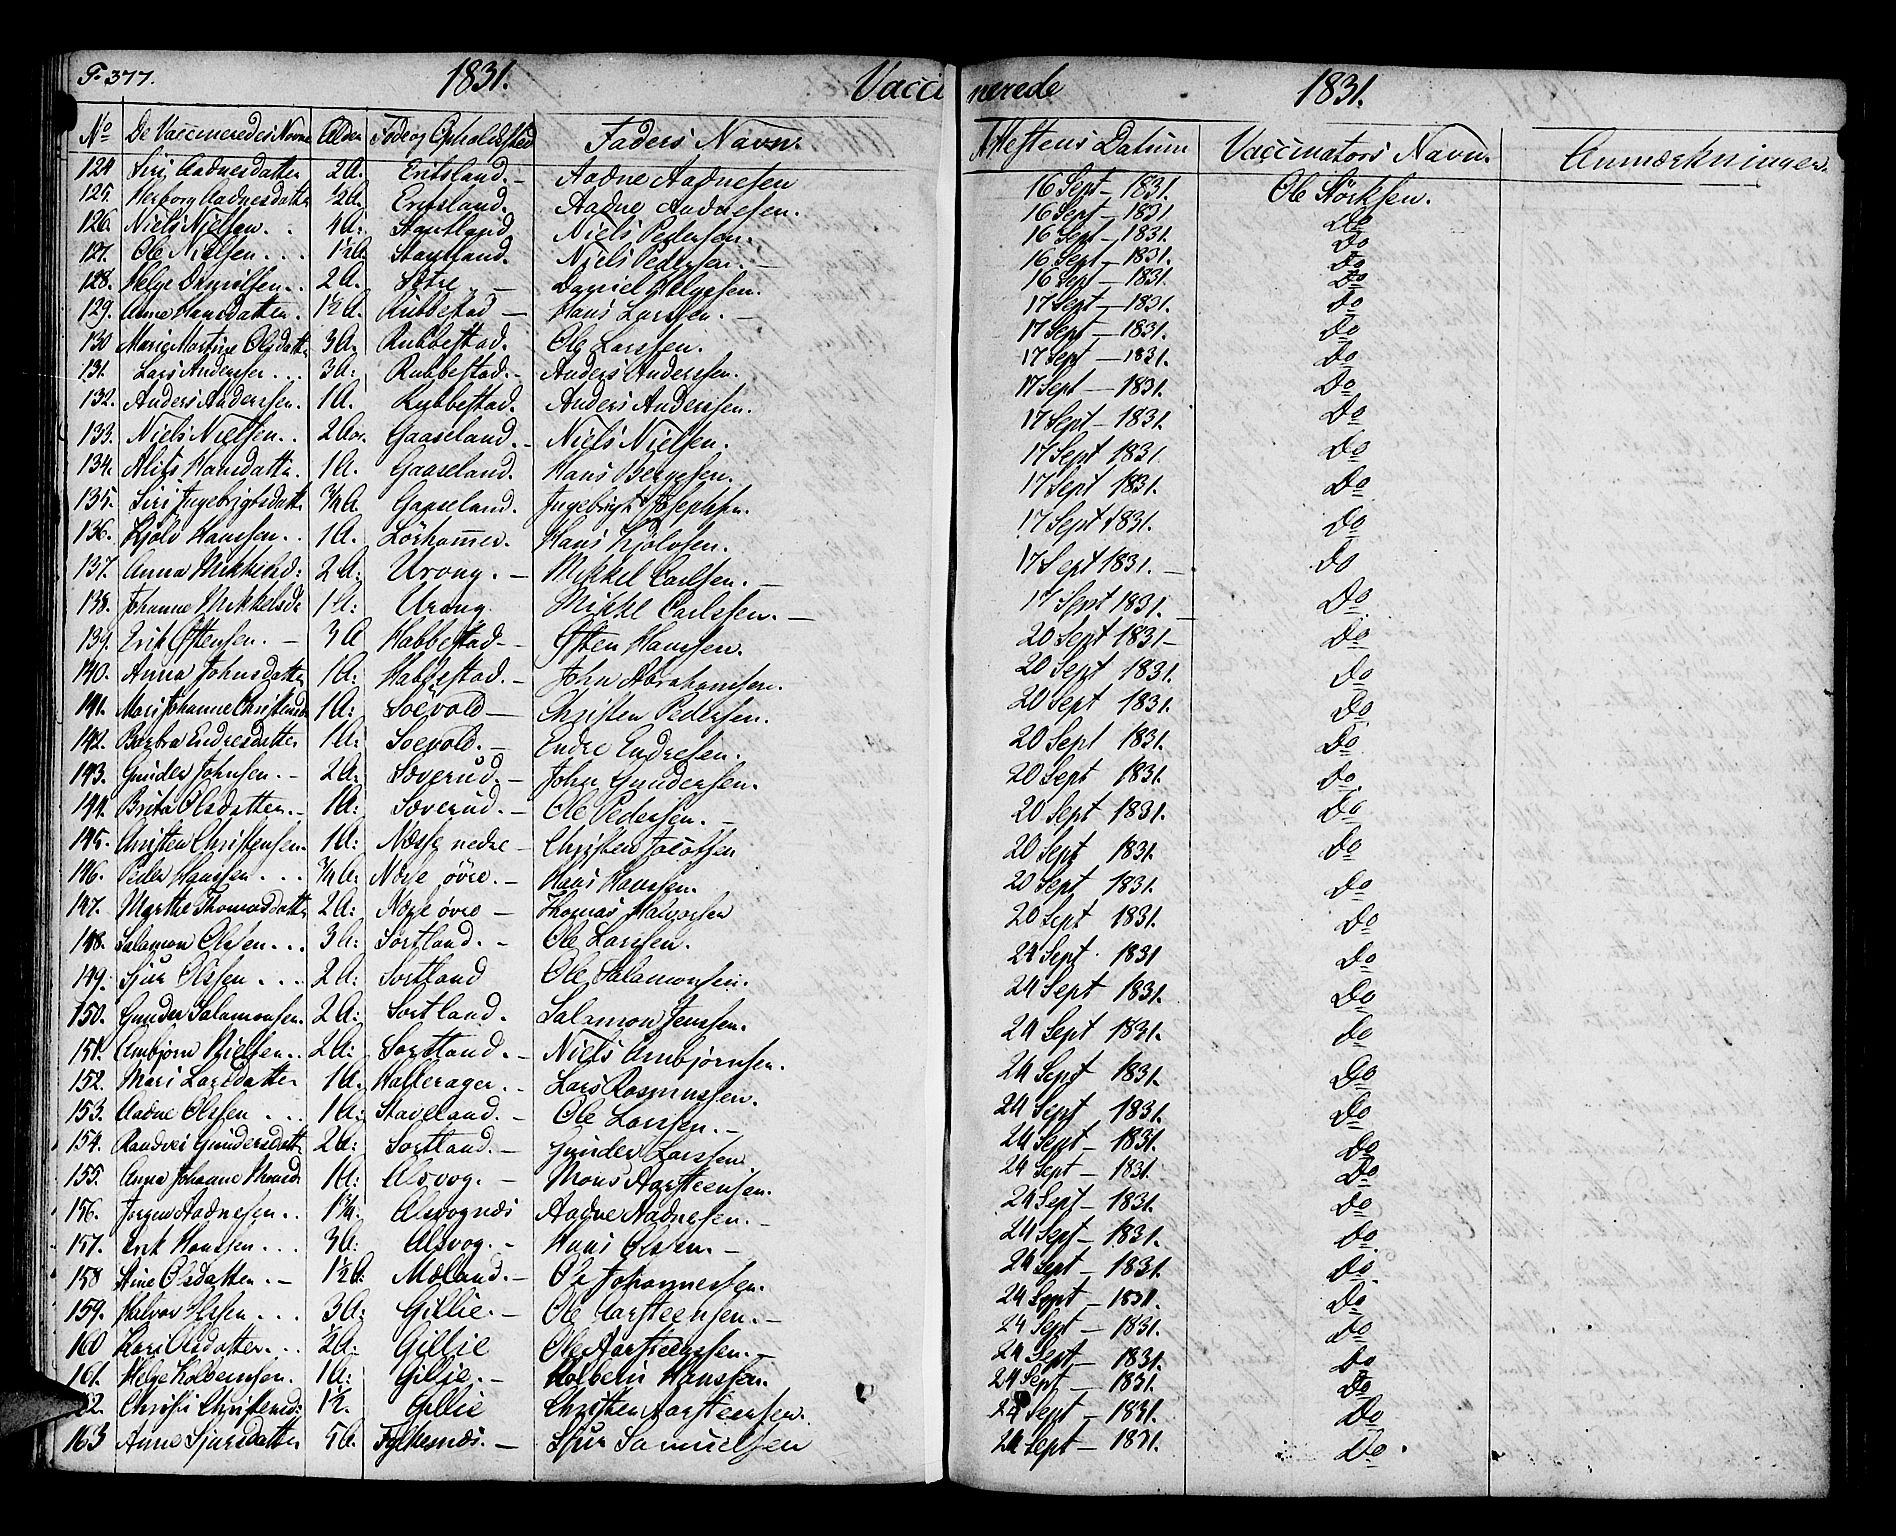 F. 377. 1831. Vaccinerede 1831.
No De Vaccineredes Navne Alder Føde og Opholdsted Faders Navn Attestens Datum Vaccinators Navn Anmærkninger
124 Siri Aadnesdatter 2 A. Eritsland. - Aadne Aadnesen 16 Sept - 1831. Ole Störksen.
125. Herborg Aadnesdatter ½ A. Eritsland. Aadne Aadnesen. 16 Sept - 1831 Do
126. Niels Nielsen . . 4 A: Stautland Niels Pedersen. 16 Sept - 1831. Do
127. Ole Nielsen . . . 1½ A Stautland. Niels Pedersen. - 16 Sept - 1831. Do
128. Helge Danielsen . . 2 A. Sætre - Daniel Helgesen. 16 Sept - 1831. Do
129. Anne Hansdatter. 1½ A. Rubbestad - Hans Larssen. - 17 Sept - 1831. Do
130 Marie Martine Olsdatter 3 A. Rubbestad. Ole Larssen. 17 Sept - 1831. Do
131. Lars Anderssen . . . 3 A: Rubbestad. - Anders Anderssen. 17 Sept - 1831. Do
132. Anders Anderssen. 1 A. Rubbestad. Anders Anderssen. 17 Sept - 1831. Do
133. Niels Nielsen . . 2 Aar. Gaaseland. - Niels Nielsen. 17 Sept - 1831. Do
134. Alits Hansdatter. 1 A. Gaaseland. Hans Bergesen. 17 Sept 1831. Do
135. Siri Ingebrigtsdatter ¾ A Gaaseland. Ingebrigt Josephsen. 17 Sept 1831. Do
136. Kjölv Hanssen . . 1 A. Lörhammer. Hans Kjölvsen. 17 Sept 1831. Do
137. Anna Mikkelsd: 2 A: Urong. - Mikkel Carlsen. - 17 Sept 1831. - Do
138. Johanne Mikkelsd: 1 A: Urong. Mikkel Carlssen. - 17 Sept 1831. Do
139. Erik Östensen. - 3 A Habbestad - Östen Hanssen. 20 Sept 1831 - Do
140. Anna Johnsdatter 1 A: Habbestad. - John Abrahamsen. 20 Sept 1831. Do
141. Mari Johanne Christensd: 1 A: Soevold - Christen Pedersen. 20 Sept 1831. Do
142. Barbra Endresdatter 1 A: Soevold. - Endre Endresen. 20 Sept 1831. Do
143. Gunder Johnsen. - 2 A: Sæverud. - John Gundersen. 20 Sept 1831. Do
144. Brita Olsdatter. - 1 A: Sæverud. - Ole Pedersen. - 20 Sept 1831. Do
145. Christen Christensen. 1 A: Næsse nedre - Christen Jacobsen 20 Sept 1831. Do
146. Peder Hanssen . . . ¾ A: Næse övre. - Hans Hanssen. 20 Sept 1831. Do
147. Marthe Thomasdatter 2 A: Næse övre - Thomas Halvorsen 20 Sept 1831. Do
148. Salamon Olssen . . . 3 A: Sortland. - Ole Larssen. 24 Sept 1831 Do
149. Sjur Olssen . . . 2 A: Sortland Ole Salamonsen. 24 Sept 1831. Do
150. Gunder Salamonsen. 2 A: Sortland. Salamon Jenssen. 24 Sept 1831. Do
151. Ambjörn Nielsen . . 2 A: Sortland. - Niels Ambjörnsen. 24 Sept 1831. Do
152. Mari Larsdatter 1 A. Hallerager. - Lars Rasmussen. 24 Sept 1831. Do
153. Aadne Olssen . . . 1 A: Staveland. - Ole Larssen. - 24 Sept 1831. Do
154. Randvei Gundersdatter 2 A: Sortland. - Gunder Larssen 24 Sept - 1831. Do
155. Anna Johanne Monsd: 1 A: Alsvog. - Mons Aarsteensen. 24 Sept - 1831. Do
156. Jörgen Aadnesen . . 1¾. Alsvognæs Aadne Aadnesen. - 24 Sept - 1831. Do
157. Erik Hanssen . . . 3 A: Alsvog. - Hans Olssen. - 24 Sept - 1831. Do
158 Stine Olsdatter. - 1½ A: Mæland. - Ole Johannessen. 24 Sept - 1831. Do
159. Halvor Olssen . . . 3 A: Gillie. - Ole Aarsteensen. - 24 Sept - 1831. Do
160 Kari Olsdatter . . . ½ A: Gillie Ole Aarsteensen. - 24 Sept - 1831. Do
161. Helge Kolbeinsen. 1 A: Gilje. - Kolbein Hanssen. 24 Sept - 1831. Do
162. Christi Christensd: 1½. Gillie Christen Aarsteensen. 24 Sept - 1831. Do
163 Anne Sjursdatter 5 A. Fylkesnæs. - Sjur Samuelsen 24 Sept - 1831. Do